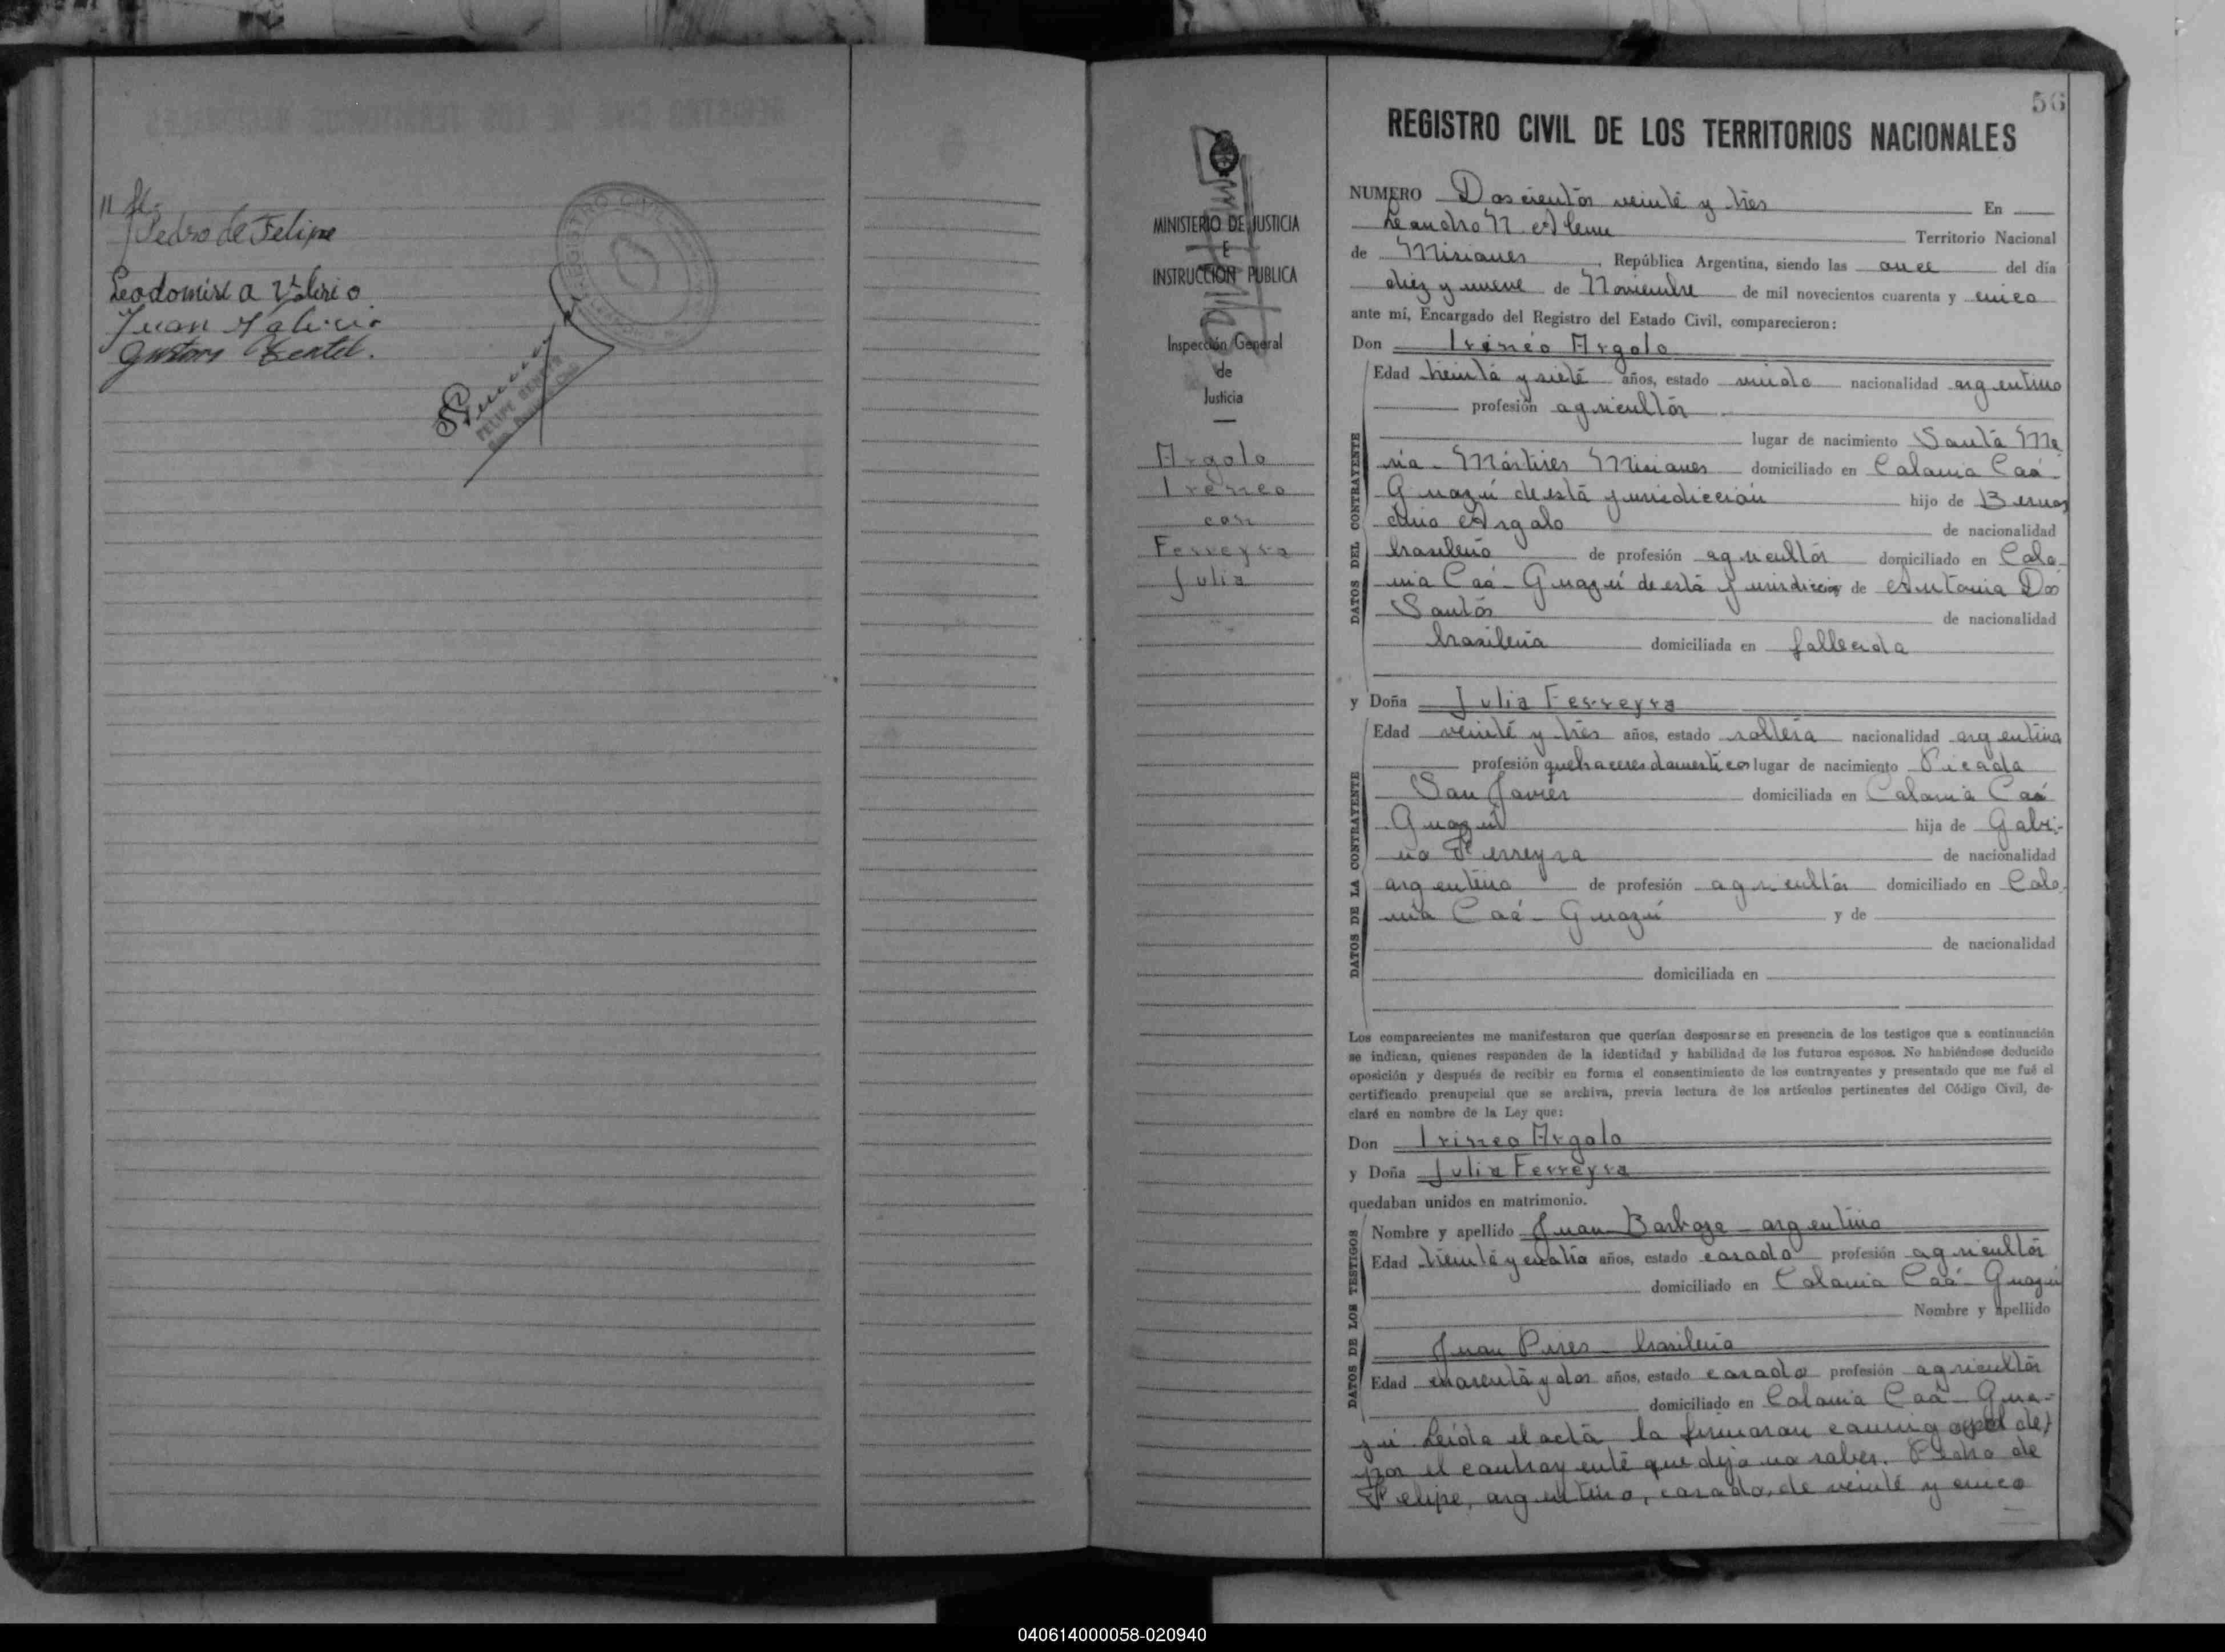 Pedro de Felipe
Leodomira Valerio
Juan Valerio
REGISTRO CIVIL
FELIPE
56
REGISTRO CIVIL DE LOS TERRITORIOS NACIONALES
MINISTERIO DE JUSTICIA
E
INSTRUCCIÓN PUBLICA
Inspección General
de
Justicia
Argolo
Ireneo
con
Ferreyra
Julia
NUMERO Doscientos veinte y tres En
Leandro N. Alem Territorio Nacional
de Misiones, República Argentina, siendo las once del día
diez y nueve de Noviembre de mil novecientos cuarenta y cinco
ante mí, Encargado del Registro del Estado Civil, comparecieron:
Don Irineo Argolo
Edad treinta y siete años, estado viudo nacionalidad argentino
profesión agricultor
DATOS DEL CONTRAYENTE
lugar de nacimiento Santa Ma
ria - Mártires Misiones domiciliado en Colonia Caá-
Guazú de esta jurisdicción hijo de Bernar
dino Argolo de nacionalidad
brasileño de profesión agricultor domiciliado en Colo
nia Caá-Guazú de esta jurisdiccion de Antonia Dos
Santos de nacionalidad
brasileña domiciliada en fallecida
y Doña Julia Ferreyra
Edad veinte y tres años, estado soltera nacionalidad argentina
profesión quehaceres domesticos lugar de nacimiento Picada
DATOS DE LA CONTRAYENTE
San Javier domiciliada en Colonia Caá
Guazú hija de Gabi-
no Ferreyra de nacionalidad
argentino de profesión agricultor domiciliado en Colo
nia Caá-Guazú y de
de nacionalidad
domiciliada en
Los comparecientes me manifestaron que querían desposarse en presencia de los testigos que a continuación
se indican, quienes responden de la identidad y habilidad de los futuros esposos. No habiéndose deducido
oposición y después de recibir en forma el consentimiento de los contrayentes y presentado que me fué el
certificado prenupcial que se archiva, previa lectura de los artículos pertinentes del Código Civil, de-
claré en nombre de la Ley que:
Don Irineo Argolo
y Doña Julia Ferreyra
quedaban unidos en matrimonio.
DATOS DE LOS TESTIGOS
Nombre y apellido Juan Barboza - argentino
Edad treinta y cuatro años, estado casado profesión agricultor
domiciliado en Colonia Caá-Guazú
Nombre y apellido
Juan Pires - brasileño
Edad cuarenta y dos años, estado casado profesión agricultor
domiciliado en Colonia Caá-Gua-
zú Leída el acta la firmaron conmigo
por el contrayente que dijo no saber. Pedro de
Felipe, argentino, casado, de veinte y cinco
040614000058-020940